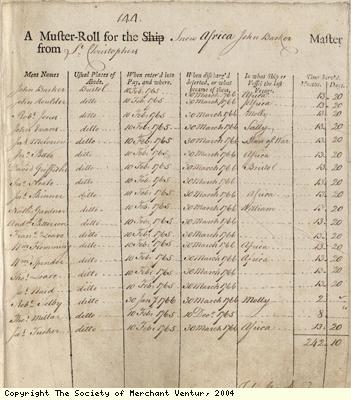 144.
A Muster-Roll for the Ship Snow Africa John Barker Master
from St. Christophers
Mens Names Usual Places of Abode. When enter'd into Pay, and where. When discharg'd deserted, or what became of them. In what Ship or Vessel the last Voyage. Time Served. Months. Days.
John Barker Bristol 10 Feb. 1765 30 March 1766 Africa 13 20
John Moulder ditto 10 Feb. 1765 30 March 1766 Africa 13 20
Robt. Jones ditto 10 Feb. 1765 30 March 1766 Molly 13 20
John Evans ditto 10 Feb. 1765 30 March 1766 Sally 13 20
ditto 10 Feb. 1765 30 March 1766 Man of War 13 20
ditto 10 Feb. 1765 30 March 1766 Africa 13 20
David Griffiths ditto 10 Feb. 1765 30 March 1766 Bristol 13 20
ditto 10 Feb. 1765 30 March 1766 13 20
Skinner ditto 10 Feb. 1765 30 March 1766 Africa 13 20
Gardner ditto 10 Feb. 1765 30 March 1766 William 13 20
ditto 10 Feb. 1765 30 March 1766 13 20
ditto 10 Feb. 1765 30 March 1766 13 20
Wm. ditto 10 Feb. 1765 30 March 1766 Africa 13 20
Wm. Spender ditto 10 Feb. 1765 30 March 1766 Africa 13 20
Thos. ditto 10 Feb. 1765 30 March 1766 13 20
ditto 10 Feb. 1765 30 March 1766 13 20
Robt. Selby ditto 30 Jany 1766 30 March 1766 Molly 2
Thos. Millar ditto 10 Feb. 1765 10 Decr. 1765 8
Js. Tucker ditto 10 Feb. 1765 30 March 1766 Africa 13 20
242 10
Copyright The Society of Merchant Ventur, 2004